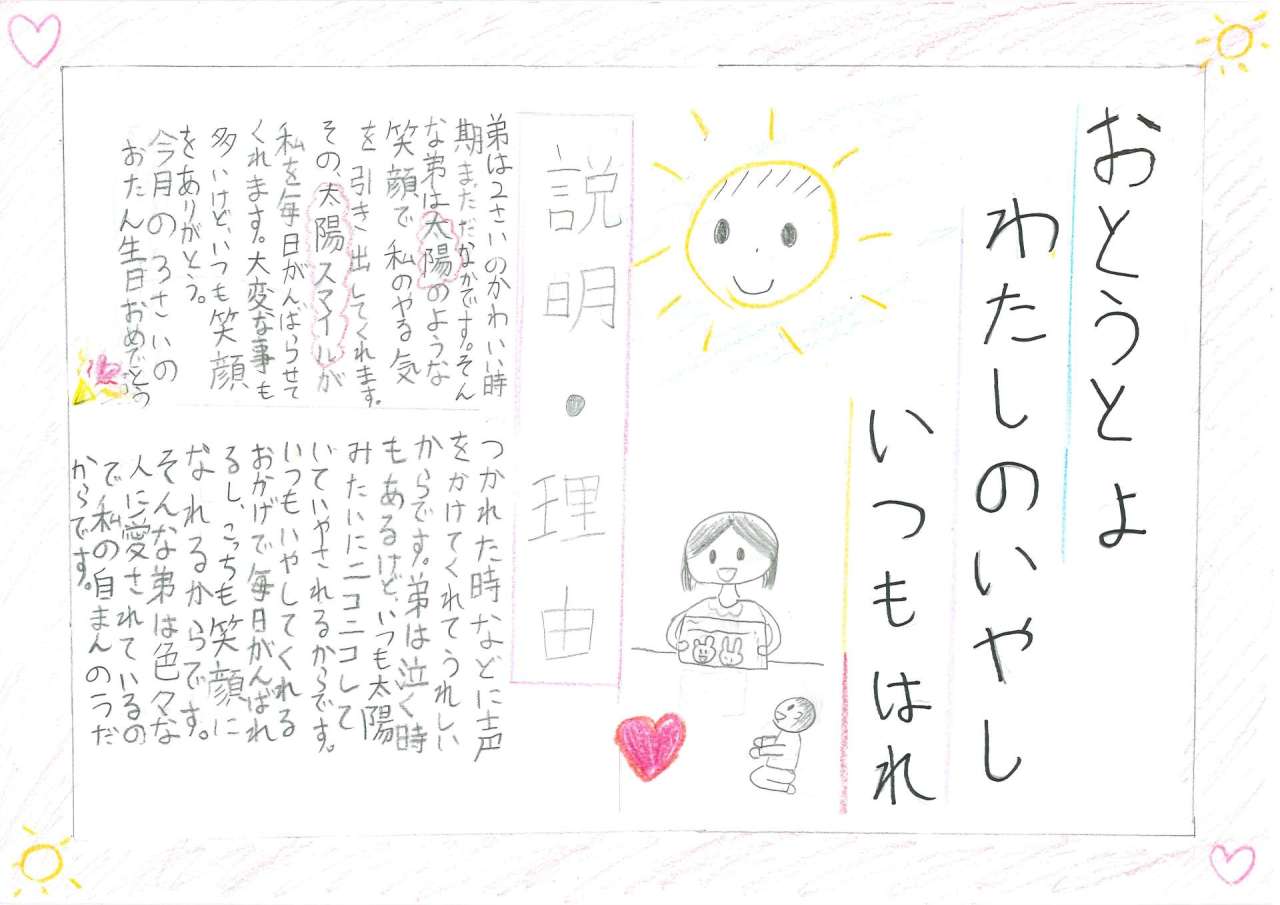 おとうとよ
わたしのいやし
いつもはれ
説明・理由
弟は2さいのかわいい時
期まだだなかです。そん
な弟は太陽のような
笑顔で私のやる気
を引き出してくれます。
その、太陽スマイルが
私を毎日がんばらせて
くれます。大変な事も
多いけど、いつも笑顔
をありがとう。
今月の3さいの
おたん生日おめでとう
つかれた時などに声
をかけてくれてうれしい
からです。弟は泣く時
もあるけど、いつも太陽
みたいにニコニコして
いていやされるからです。
いつもいやしてくれる
おかげで毎日がんばれ
るし、こっちも笑顔に
なれるからです。
そんな弟は色々な
人に愛されているの
で私の自まんのうだ
からです。